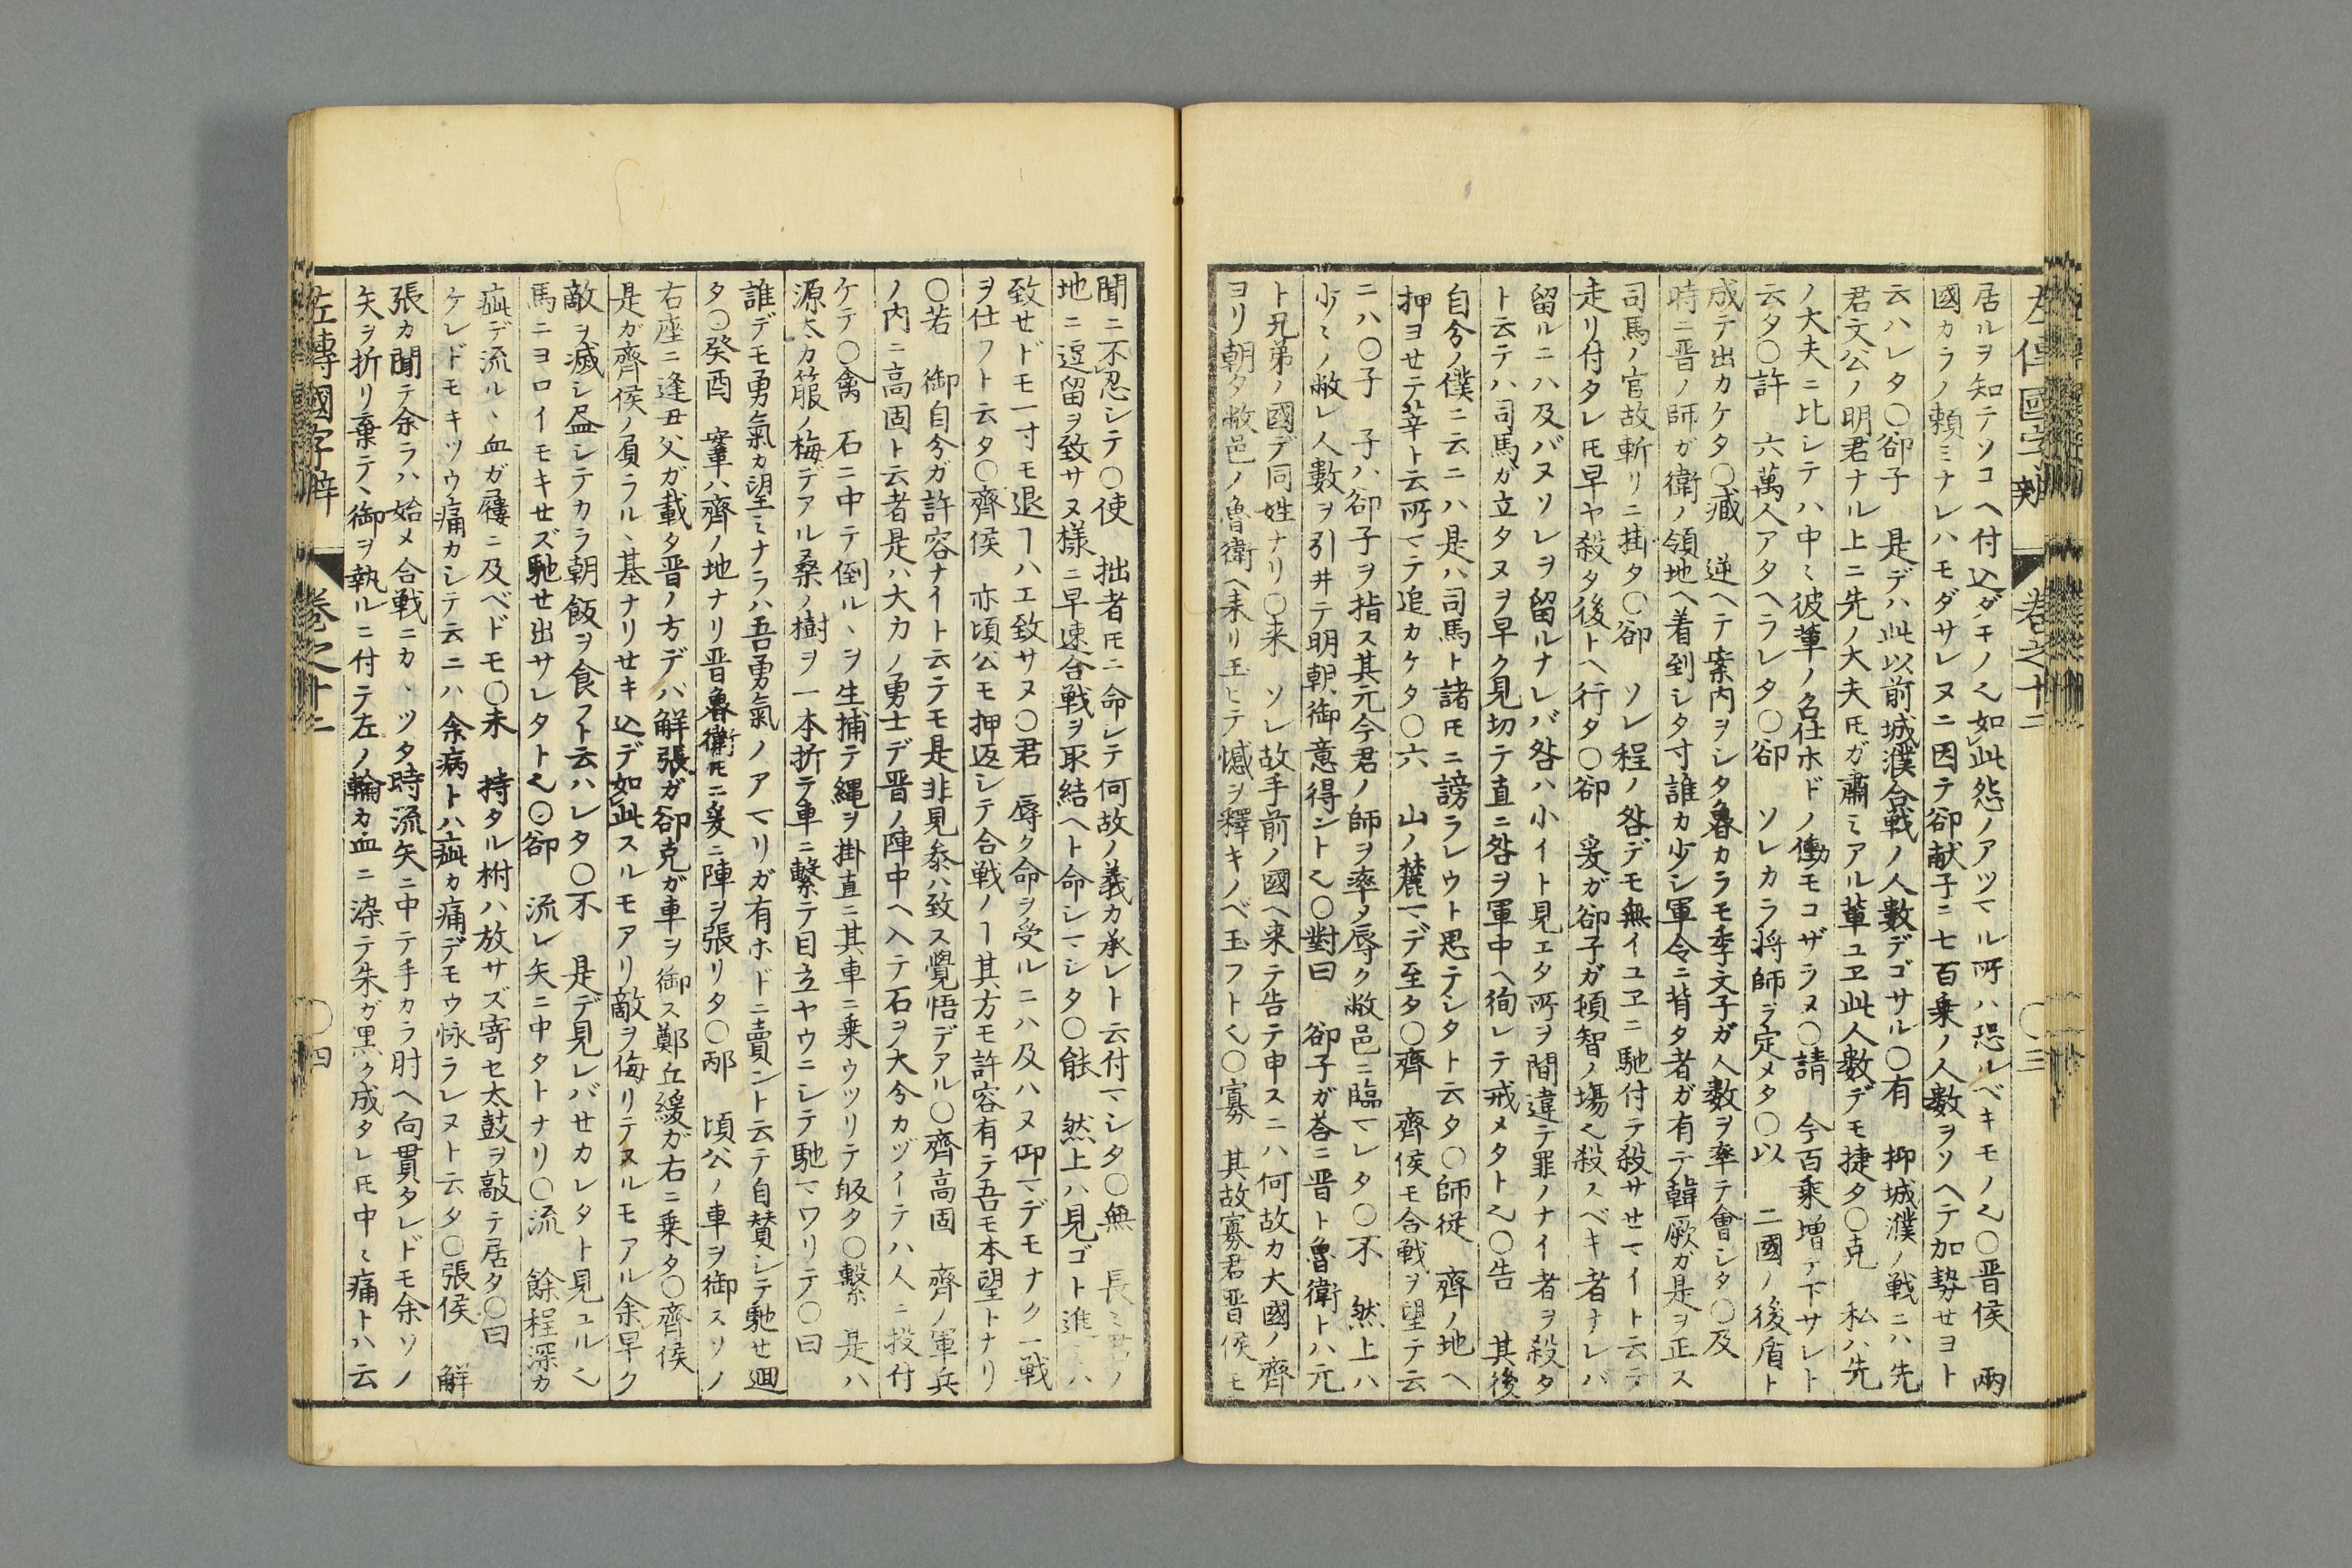 左傳國字辨 卷之十二 〇三
居ルヲ知テソコヘ付込ダモノ乀如此怨ノアツマル所ハ恐ルベキモノ乀〇晋侯 兩
國カラノ頼ミナレハモダサレヌニ因テ郤献子ニ七百乗ノ人數ヲソヘテ加勢セヨト
云ハレタ〇郤子 是デハ此以前城濮合戰ノ人數デゴサル〇有 抑城濮ノ戦ニハ先
君文公ノ明君ナル上ニ先ノ大夫𪜈ガ肅ミアル軰ユヱ此人數デモ捷タ〇克 私ハ先
ノ大夫ニ比シテハ中〻彼軰ノ名仕ホドノ働モコザラヌ〇請 今百乘増テ下サレト
云タ〇許 六萬人アタヘラレタ〇郤 ソレカラ将師ヲ定メタ〇以 二國ノ後盾ト
成テ出カケタ〇臧 逆ヘテ案内ヲシタ魯カラモ季文子ガ人數ヲ率テ會シタ〇及
時ニ晋ノ師ガ衛ノ領地ヘ着到シタ寸誰カ少シ軍令ニ背タ者ガ有テ韓厥ガ是ヲ正ス
司馬ノ官故斬リニ掛タ〇郤 ソレ程ノ咎デモ無イユヱニ馳付テ殺サセマイト云テ
走リ付タレ𪜈早ヤ殺タ後トヘ行タ〇郤 爰ガ郤子ガ頓智ノ塲乀殺スベキ者ナレバ
留ルニハ及バヌソレヲ留ルナレバ咎ハ小イト見エタ所ヲ間違テ罪ノナイ者ヲ殺タ
ト云テハ司馬ガ立タヌヲ早ク見切テ直ニ咎ヲ軍中ヘ徇レテ戒メタト乀〇告 其後
自分ノ僕ニ云ニハ是ハ司馬ト諸𪜈ニ謗ラレウト思テシタト云タ〇師従 齊ノ地ヘ
押ヨセテ莘ト云所マテ追カケタ〇六 山ノ麓マデ至タ〇齊 齊侯モ合戰ヲ望テ云
ニハ〇子 子ハ郤子ヲ指ス其元今君ノ師ヲ率タ辱ク敝邑ニ臨マレタ〇不 然上ハ
少〻ノ敝レ人數ヲ引井テ明朝御意得ント乀〇對曰 郤子ガ荅ニ晋ト魯衛トハ元
ト兄弟ノ國デ同姓ナリ〇来 ソレ故手前ノ國ヘ来テ告テ申スニハ何故カ大國ノ齊
ヨリ朝タ敝邑ノ魯衛ヘ来リ玉ヒテ憾ヲ釋キノベ玉フト乀〇寡 其故寡君晋侯モ
聞ニ不忍シテ〇使 拙者𪜈ニ命レテ何故ノ義カ承レト云付マシタ〇無 長〻
地ニ逗留ヲ致サヌ様ニ早速合戰ヲ取結ヘト命シマシタ〇能 然上ハ見ゴト進
致セドモ一寸モ退ヿハエ致サヌ〇君 辱ク命ヲ受ルニハ及ハヌ仰マデモナク一戦
ヲ仕フト云タ〇齊侯 亦頃公モ押返シテ合戦ノヿ其方モ許容有テ吾モ本望トナリ
〇若 御自分ガ許容ナイト云テモ是非見叅ハ致ス覺悟デアル〇齊高固 齊ノ軍兵
ノ内ニ高固ト云者是ハ大カノ勇士デ晋ノ陣中ヘ入テ石ヲ大分カヅイーテハ人ニ投付
ケテ〇禽 石ニ中テ倒ルヽヲ生捕テ縄ヲ掛直ニ其車ニ乗ウツリテ皈タ〇繋 是ハ
源太カ箙ノ梅デアル桑ノ樹ヲ一本折テ車ニ繋テ目立ヤウニシテ馳マワリテ〇曰
誰デモ勇氣カ望ミナラハ吾勇氣ノアマリガ有ホドニ賣ント云テ自賛シテ馳せ廻
タ〇癸酉 鞌ハ齊ノ地ナリ晋魯衛𪜈ニ爰ニ陣ヲ張リタ〇邴 頃公ノ車ヲ御スソノ
右座ニ逢丑父ガ載タ晋ノ方デハ解張ガ郤克ガ車ヲ御ス鄭丘緩ガ右ニ乗タ〇齊侯
是ガ齊侯ノ負ラルヽ基ナリセキ込デ如此スルモアリ敵ヲ侮リテスルモアル余早ク
敵ヲ滅シ盡シテカラ朝飯ヲ食フト云ハレタ〇不 是デ見レバせカレタト見ユル乀
馬ニヨロイモキセズ馳せ出サレタト乀〇郤 流レ矢ニ中タトナリ〇流 餘程深カ
疵デ流ルヽ血ガ屨ニ及ベドモ〇未 持タル枹ハ放サズ寄セ太鼓ヲ敲テ居タ〇曰
ケレドモキツウ痛カシテ云ニハ余病トハ疵カ痛デモウ怺ラレヌト云タ〇張侯 解
張カ聞テ余ラハ始メ合戰ニカヽツタ時流矢ニ中テ手カラ肘ヘ向貫タレドモ余ソノ
矢ヲ折リ棄テヽ御ヲ執ルニ付テ左ノ輪カ血ニ染テ朱ガ黒ク成タレ𪜈中〻痛トハ云
左傳國字辨 卷之十二 〇四